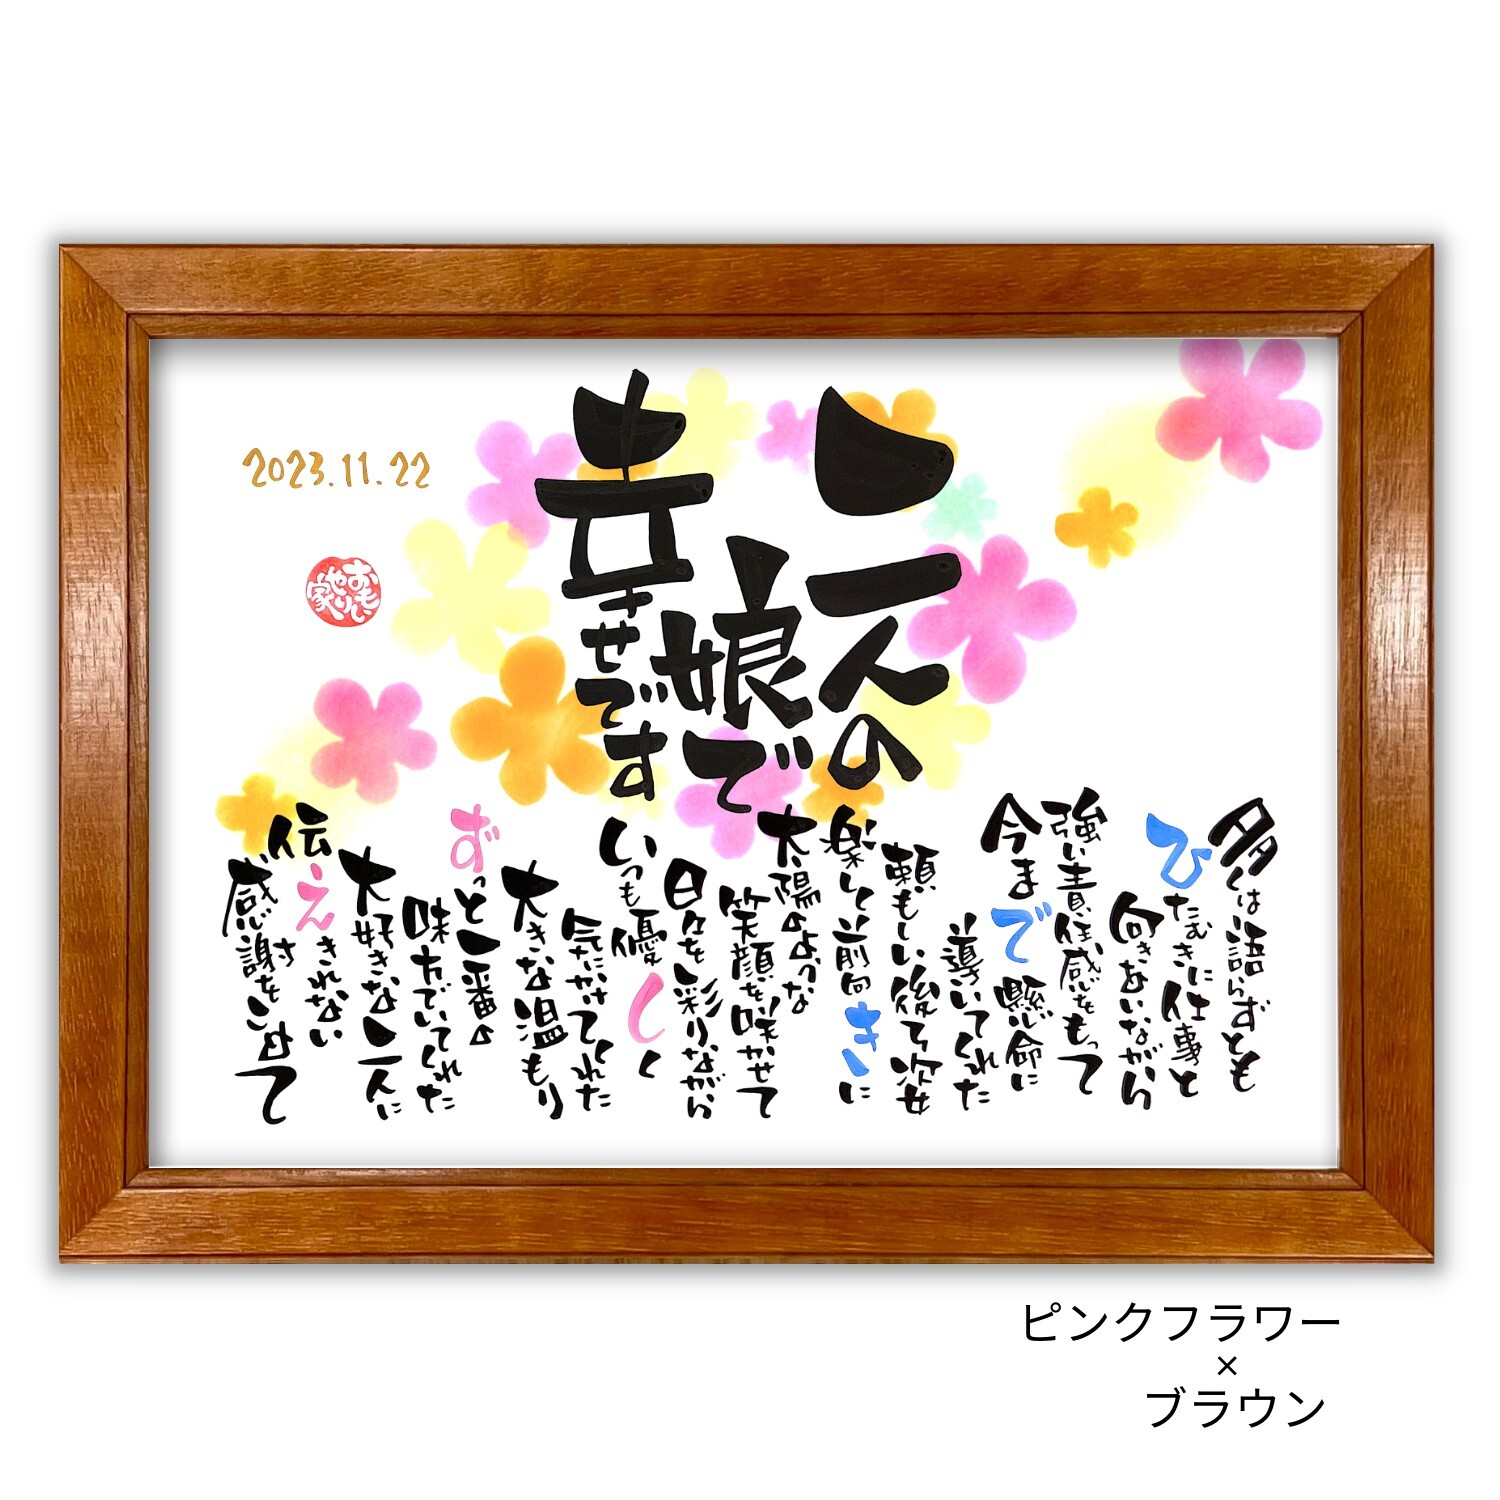 二人の
娘で
幸せです
2023.11.22
おもい
やり
家
多くは語らずとも
ひたむきに仕事と
向きあいながら
強い責任感をもって
今まで懸命に
導いてくれた
頼もしい後ろ姿
楽しく前向きに
太陽のような
笑顔を咲かせて
日々を彩りながら
いつも優しく
気にかけてくれた
大きな温もり
ずっと一番の
味方でいてくれた
大好きな二人に
伝えきれない
感謝をこめて
ピンクフラワー
×
ブラウン